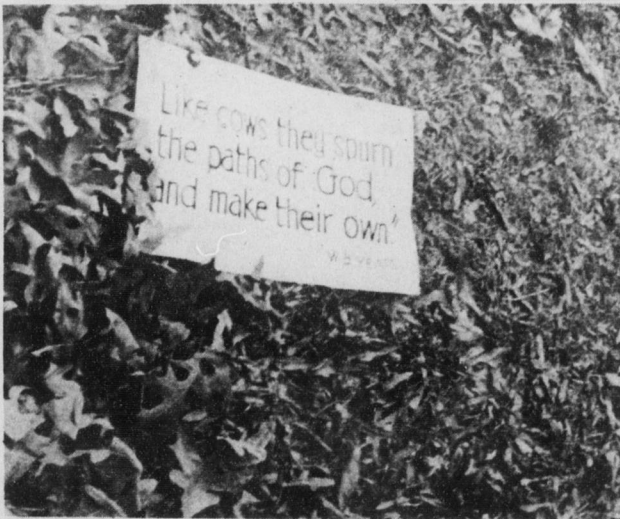 Like cows they spurn
the paths of God,
and make their own."
W B YEATS